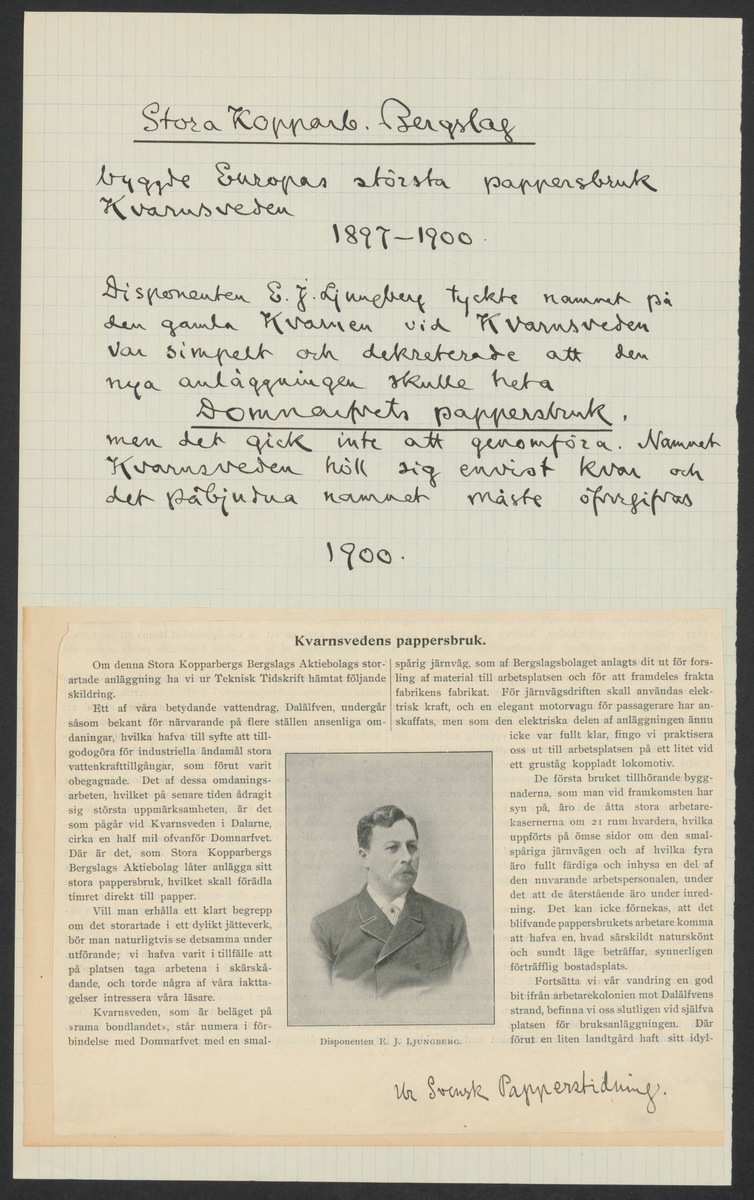 Stora Kopparb. Bergslag
byggde Europas största pappersbruk
Kvarnsveden
1897–1900.
Disponenten E. J. Ljungberg tyckte namnet på
den gamla Kvarnen vid Kvarnsveden
var simpelt och dekreterade att den
nya anläggningen skulle heta
Domnarfvets pappersbruk,
men det gick inte att genomföra. Namnet
Kvarnsveden höll sig envist kvar och
det påbjudna namnet måste öfvergifvas
1900.
Kvarnsvedens pappersbruk.
Om denna Stora Kopparbergs Bergslags Aktiebolags stor-
artade anläggning ha vi ur Teknisk Tidskrift hämtat följande
skildring.
Ett af våra betydande vattendrag, Dalälfven, undergår
såsom bekant för närvarande på flere ställen ansenliga om-
daningar, hvilka hafva till syfte att till-
godogöra för industriella ändamål stora
vattenkrafttillgångar, som förut varit
obegagnade. Det af dessa omdanings-
arbeten, hvilket på senare tiden ådragit
sig största uppmärksamheten, är det
som pågår vid Kvarnsveden i Dalarne,
cirka en half mil ofvanför Domnarfvet.
Där är det, som Stora Kopparbergs
Bergslags Aktiebolag låter anlägga sitt
stora pappersbruk, hvilket skall förädla
timret direkt till papper.
Vill man erhålla ett klart begrepp
om det storartade i ett dylikt jätteverk,
bör man naturligtvis se detsamma under
utförande; vi hafva varit i tillfälle att
på platsen taga arbetena i skärskå-
dande, och torde några af våra iaktta-
gelser intressera våra läsare.
Kvarnsveden, som är beläget på
»rama bondlandet», står numera i för-
bindelse med Domnarfvet med en smal-
spårig järnväg, som af Bergslagsbolaget anlagts dit ut för fors-
ling af material till arbetsplatsen och för att framdeles frakta
fabrikens fabrikat. För järnvägsdriften skall användas elek-
trisk kraft, och en elegant motorvagn för passagerare har an-
skaffats, men som den elektriska delen af anläggningen ännu
icke var fullt klar, fingo vi praktisera
oss ut till arbetsplatsen på ett litet vid
ett gruståg koppladt lokomotiv.
De första bruket tillhörande bygg-
naderna, som man vid framkomsten har
syn på, äro de åtta stora arbetare-
kasernerna om 21 rum hvardera, hvilka
uppförts på ömse sidor om den smal-
spåriga järnvägen och af hvilka fyra
äro fullt färdiga och inhysa en del af
den nuvarande arbetspersonalen, under
det att de återstående äro under inred-
ning. Det kan icke förnekas, att det
blifvande pappersbrukets arbetare komma
att hafva en, hvad särskildt naturskönt
och sundt läge beträffar, synnerligen
förträfflig bostadsplats.
Fortsätta vi vår vandring en god
bit ifrån arbetarekolonien mot Dalälfvens
strand, befinna vi oss slutligen vid själfva
platsen för bruksanläggningen. Där
förut en liten landtgård haft sitt idyl-
Disponenten E. J. LJUNGBERG.
Ur Svensk Papperstidning.